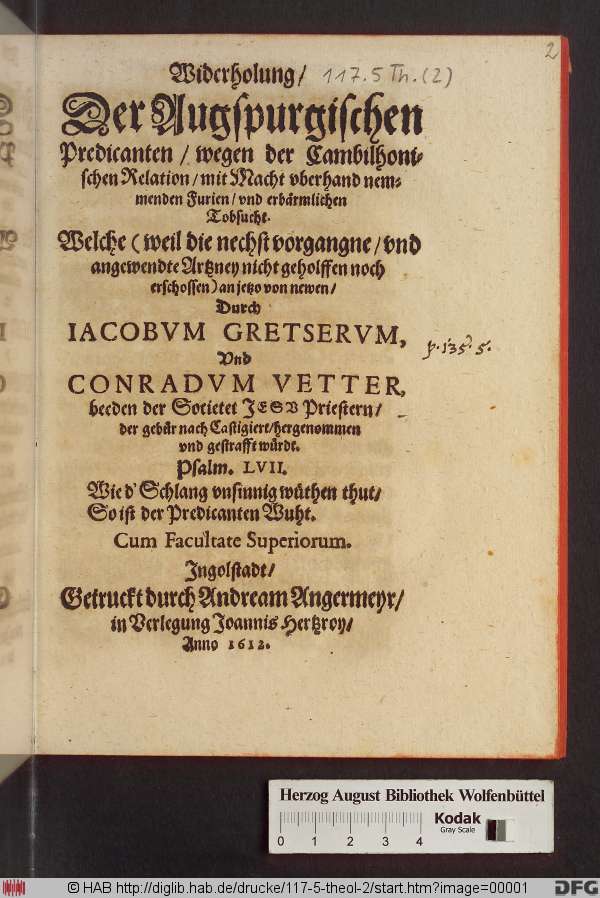 2
Widerholung/ 117.5 Th.(2)
Der Augspurgischen
Predicanten / wegen der Cambilhoni-
schen Relation / mit Macht vberhand nem-
menden Furien / vnd erbärmlichen
Tobsucht.
Welche ( weil die nechst vorgangne / vnd
angewendte Artzney nicht geholffen noch
erschossen ) an jetzo von newen /
Durch
IACOBVM GRETSERVM,
Vnd
CONRADVM VETTER,
beeden der Societet JESV Priestern /
der gebür nach Castigiert / hergenommen
vnd gestrafft würdt.
Psalm. LVII.
Wie d' Schlang vnsinnig wüthen thut /
So ist der Predicanten Wuht.
Cum Facultate Superiorum.
Jngolstadt /
Getruckt durch Andream Angermeyr /
in Verlegung Joannis Hertzroy /
Anno 1612.
p. 135. 5.
Herzog August Bibliothek Wolfenbüttel
Kodak
Gray Scale
0 1 2 3 4
© HAB http://diglib.hab.de/drucke/117-5-theol-2/start.htm?image=00001
DFG